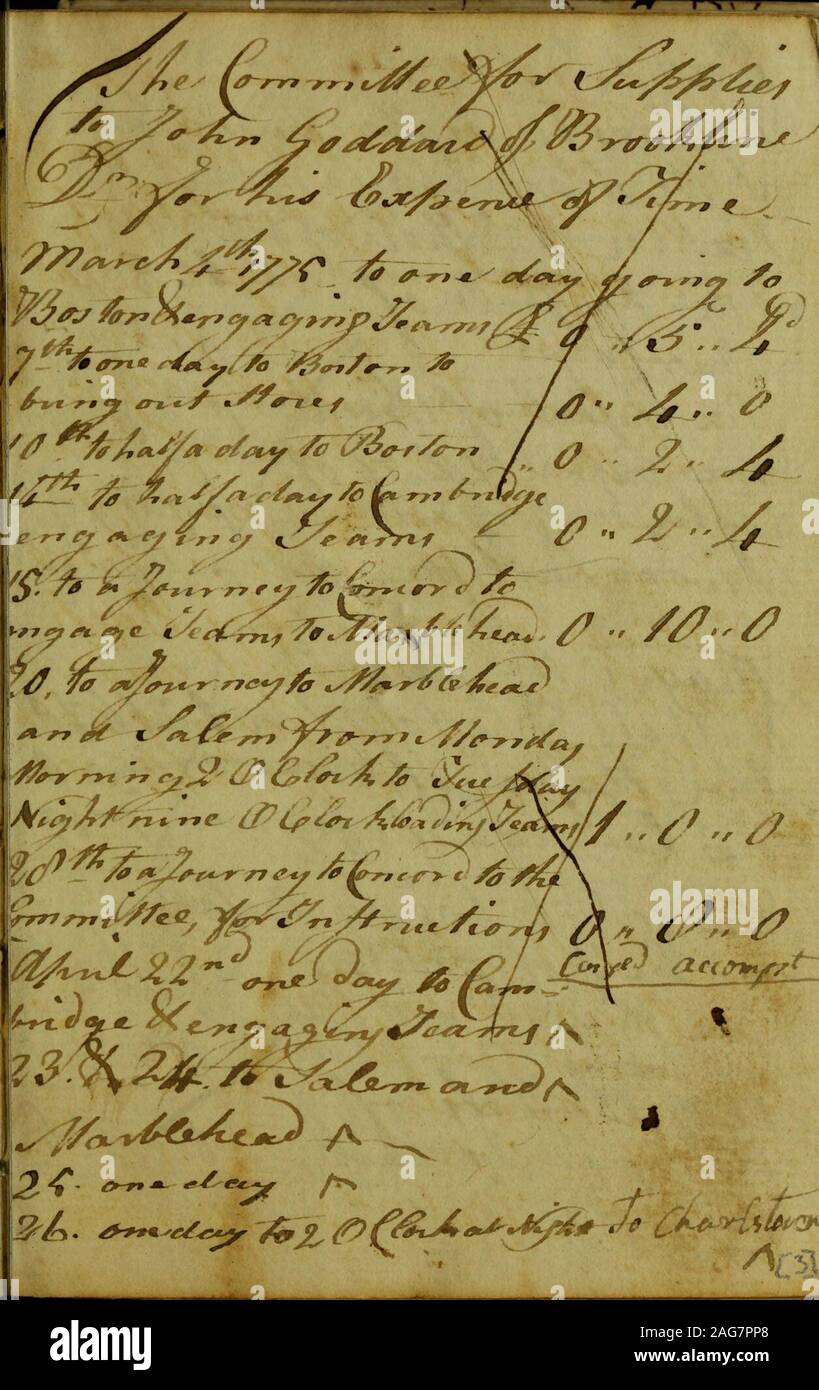 The Committee for Supplies
to John Goddard of Brookline
Dr. for his Expence of Time
March 4th 1775 to one day going to
Boston & engaging Teams £ 0 ,, 5 ,, 4d
7th to one day to Boston to
bring out Stores 0 ,, 4 ,, 0
10th to half a day to Boston ,, 0 ,, 2 ,, 4
14th to half a day to Cambridge
engaging Teams - 0 ,, 2 ,, 4
15. to a Journey to Concord to
engage Teams to Marblehead. 0 ,, 10 ,, 0
20, to a Journey to Marblehead
and Salem from Monday
Morning 2 O Clock to Tuesday
Night nine O Clock loading Teams 1 ,, 0 ,, 0
28th to a Journey to Concord to the
Committee, for Instructions 0 ,, 0 ,, 0
accompt
April 22nd one day to Cam-
bridge & engaging Teams ^
23. & 24. to Salem and ^
Marblehead ^
25. one day ^
26. one day to 2 O Clock at Night To Charlstown
^ [3]
alamy
Image ID: 2AG7PP8
www.alamy.com